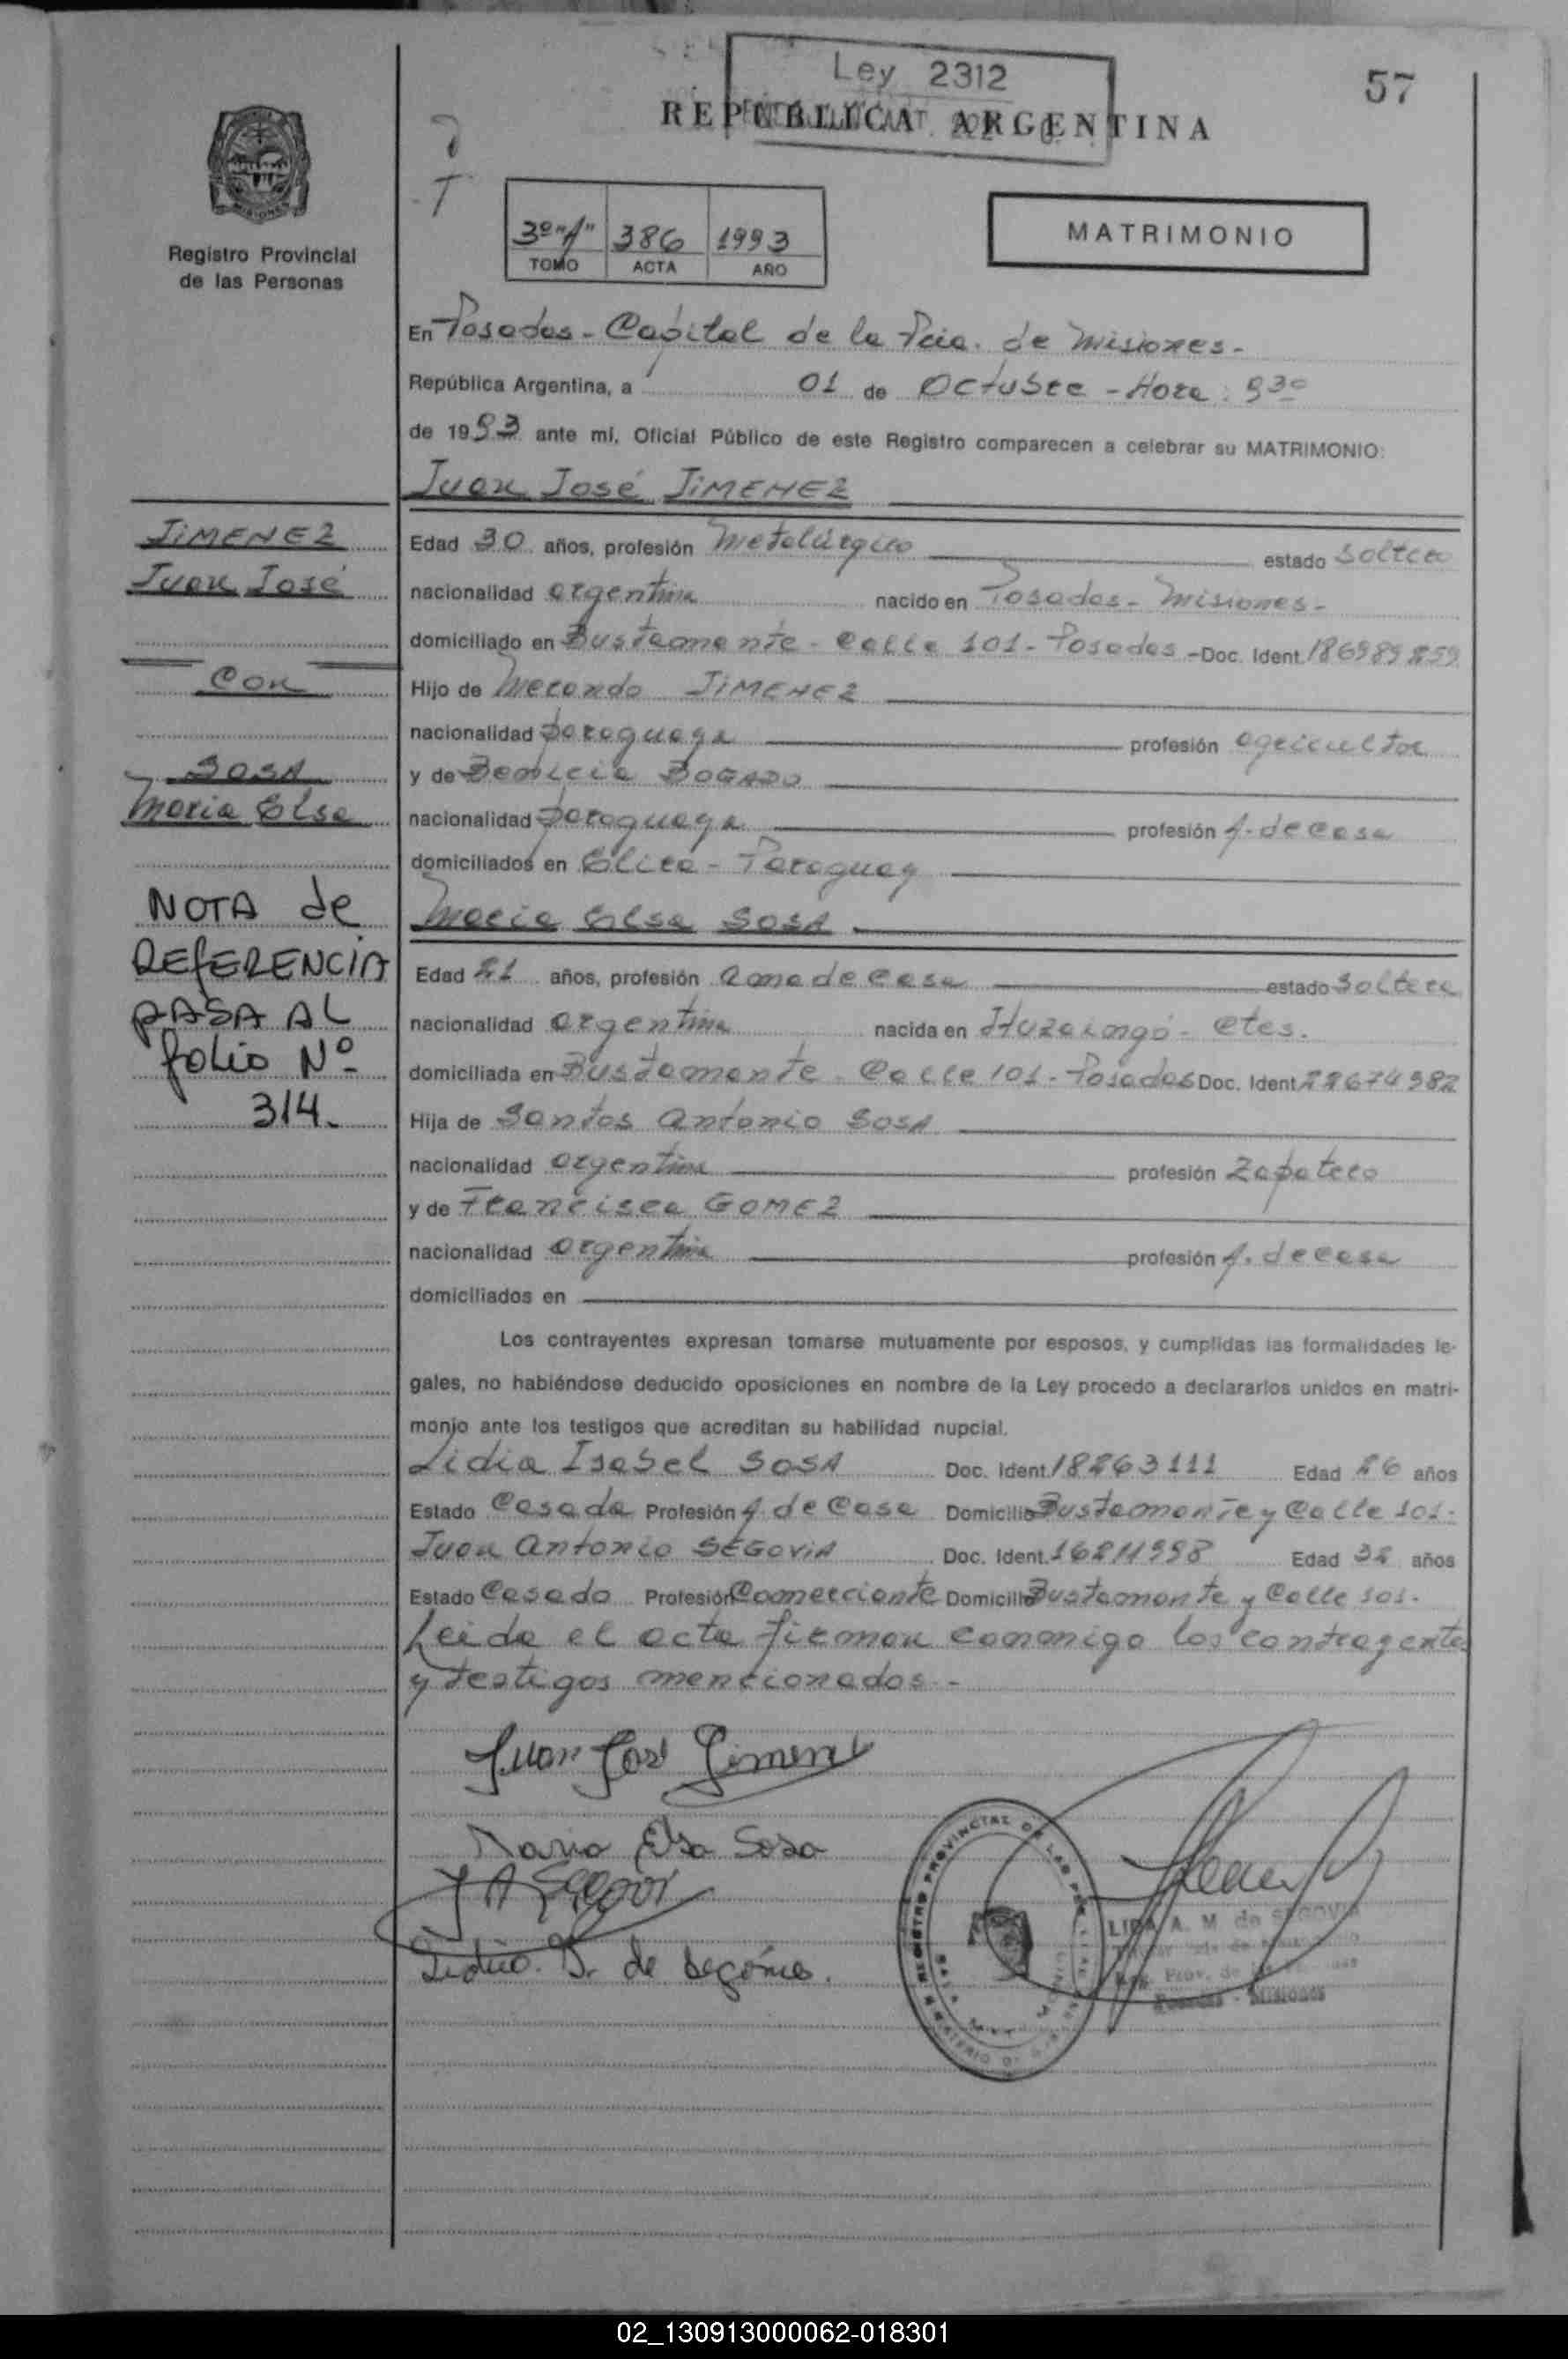 Ley 2312
57
REPUBLICA ARGENTINA
MISIONES
Registro Provincial
de las Personas
3º "A" 386 1993
TOMO ACTA AÑO
MATRIMONIO
En Posadas - Capital de la Pcia. de Misiones -
República Argentina, a 01 de Octubre - Hora: 9 30
de 1993 ante mí, Oficial Público de este Registro comparecen a celebrar su MATRIMONIO:
Juan José JIMENEZ
JIMENEZ
Juan José
Con
SOSA
Maria Elsa
NOTA de
REFERENCIA
PASA AL
folio Nº
314.
Edad 30 años, profesión Metalúrgico estado Soltero
nacionalidad argentina nacido en Posadas - Misiones -
domiciliado en Bustamante - Calle 101 - Posadas - Doc. Ident.
Hijo de JIMENEZ
nacionalidad paraguaya profesión agricultor
y de BOGADO
nacionalidad paraguaya profesión A. de Casa
domiciliados en - Paraguay
Maria Elsa SOSA
Edad 21 años, profesión ama de casa estado Soltera
nacionalidad argentina nacida en Ituzaingó - Ctes.
domiciliada en Bustamante - Calle 101 - Posadas Doc. Ident. 22674982
Hija de Santos Antonio SOSA
nacionalidad argentina profesión Zapatero
y de Francisca GOMEZ
nacionalidad argentina profesión A. de casa
domiciliados en
Los contrayentes expresan tomarse mutuamente por esposos, y cumplidas las formalidades le-
gales, no habiéndose deducido oposiciones en nombre de la Ley procedo a declararlos unidos en matri-
monio ante los testigos que acreditan su habilidad nupcial.
Lidia Isabel SOSA Doc. Ident. 18263111 Edad 26 años
Estado Casada Profesión A. de Casa Domicilio Bustamante y Calle 101 -
Juan Antonio SEGOVIA Doc. Ident. 16211998 Edad 32 años
Estado Casado Profesión Comerciante Domicilio Bustamante y Calle 101 -
Leida el acta firman conmigo los contrayentes
y testigos mencionados -
Juan José Jimenez
Maria Elsa Sosa
J A Segovi
Lidia S. de Segovia.
REGISTRO PROVINCIAL DE LAS PERSONAS
LIDA A. M. de SEGOVIA
Posadas - Misiones
02_130913000062-018301